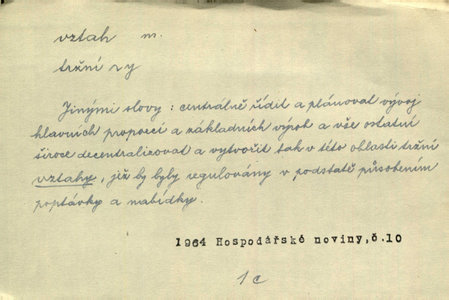 vztah m.
tržní ~y
Jinými slovy: centrálně řídit a plánovat vývoj
hlavních proporcí a základních výrob a vše ostatní
široce decentralizovat a vytvořit tak v této oblasti tržní
vztahy, jež by byly regulovány v podstatě působením
poptávky a nabídky.
1964 Hospodářské noviny,č.10
1c